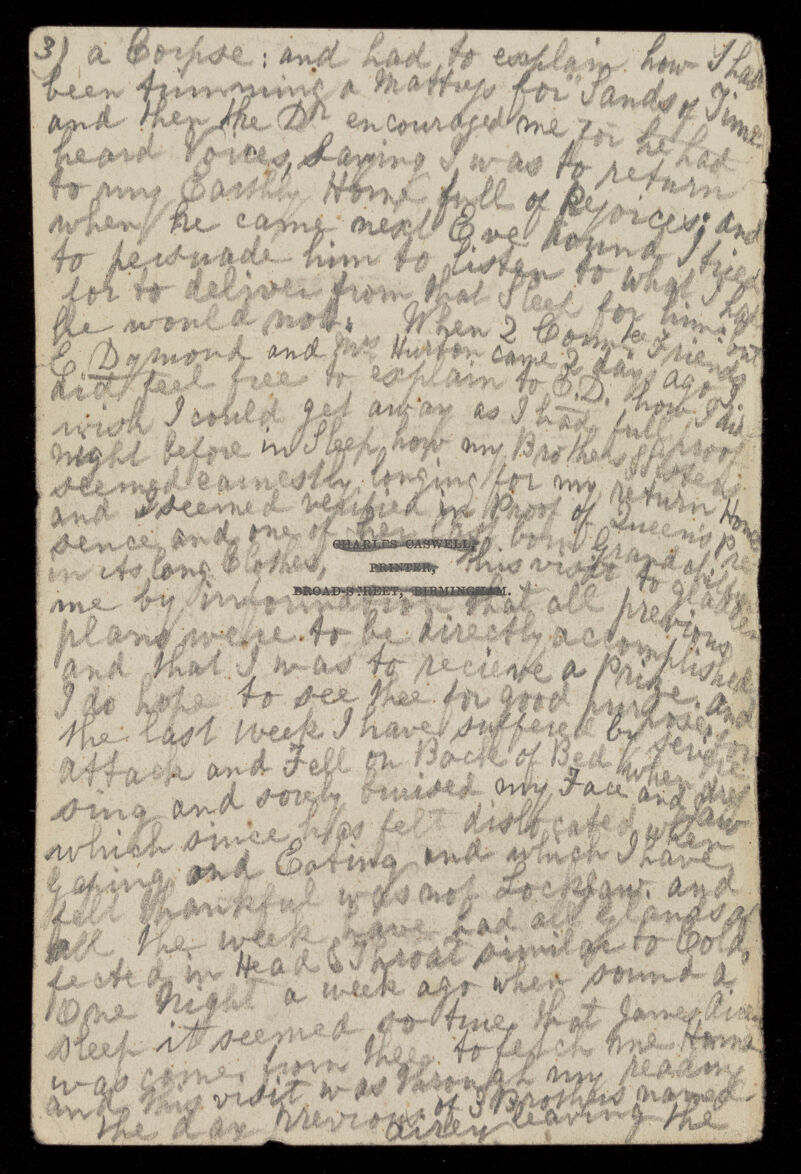 3) a Corpse: and had to explain how I had
been trimming a Mattrys for "Sands of Time
and then the Dr encouraged me for he had
heard Voices, Saying I was to return
to my Earthly Home full of Rejoices: and
when he came next Eve round I tried
to persuade him to listen to what I had
for to deliver from that Sleep for him: but
he would not: When 2 Comte Friends
E Dymond and Mrs Hurton came 2 days ago I
did feel free to explain to E.D. how I did
wish I could get away as I had full proof
night before in Sleep, how my Brothers & Sisters
seemed earnestly longing for my return Home
and seemed verified in Proof of Queen's Pre
sence and one of her last born Grandchildren
in its long Clothes, this visit to gladden
CHARLES CASWELL,
PRINTER,
BROAD-STREET, BIRMINGHAM.
me by information that all previous
plans were to be directly accomplished
and that I was to recieve a Prize. and
I do hope to see thee for good purpose, for
the last week I have suffered by severe
attack and Fell on Back of Bed when dres
sing and sorely bruised my Face and Jaw
which since has felt dislocated when
Gaping and Eating and which I have
felt thankful was not Lockjaw. and
all the week have had all Glands af
fected in Head & Throat similar to Cold,
One Night a week ago when sound a
sleep it seemed so true that James
was come from thee to fetch me Home
and this visit was through my reading
the day previous of 3 Brothers named
Airey leaving the